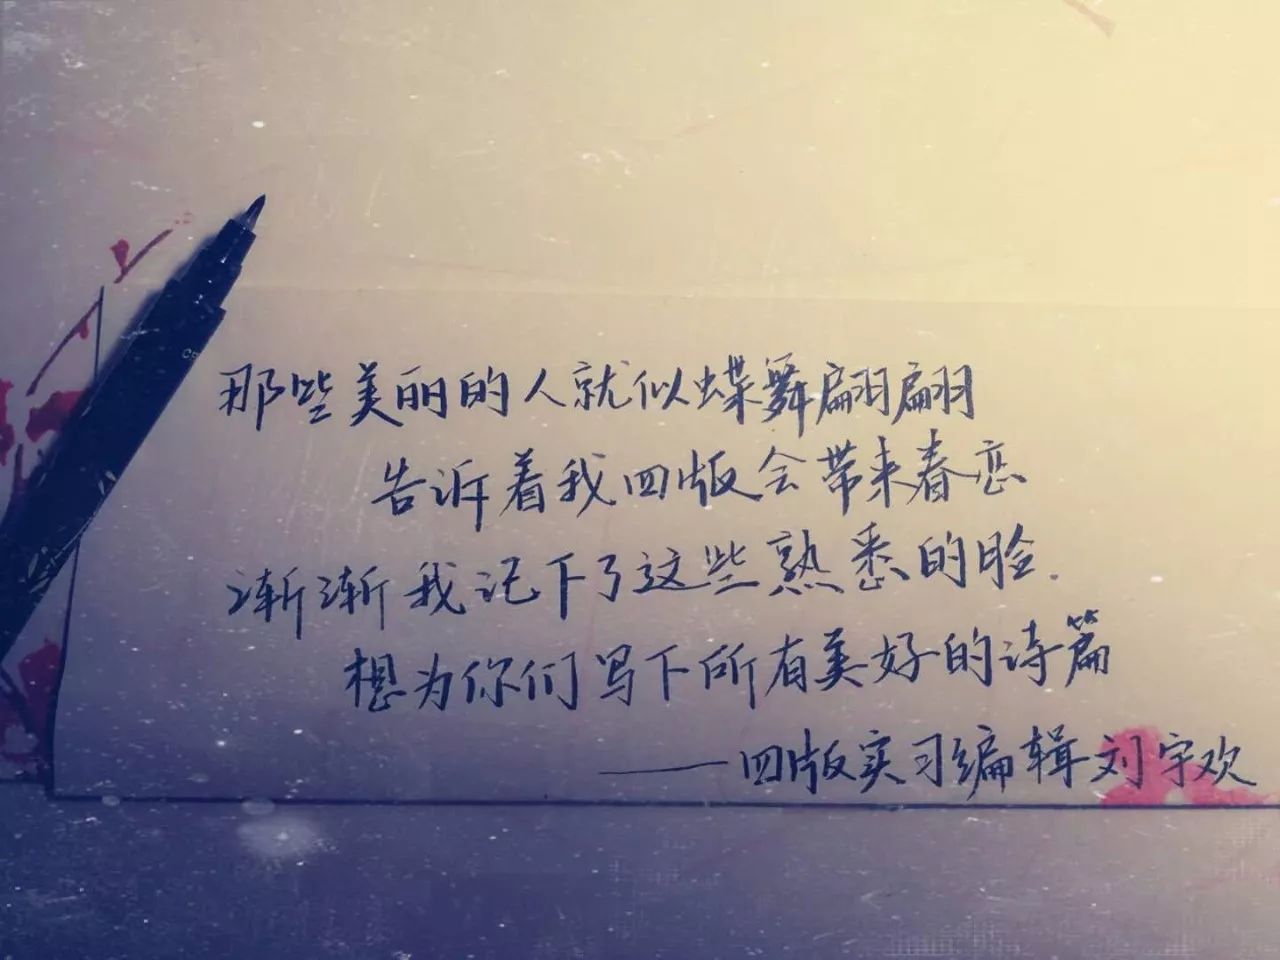 那些美丽的人就似蝶舞翩翩
告诉着我四版会带来春恋
渐渐我记下了这些熟悉的脸.
想为你们写下所有美好的诗篇
——四版实习编辑刘宇欢